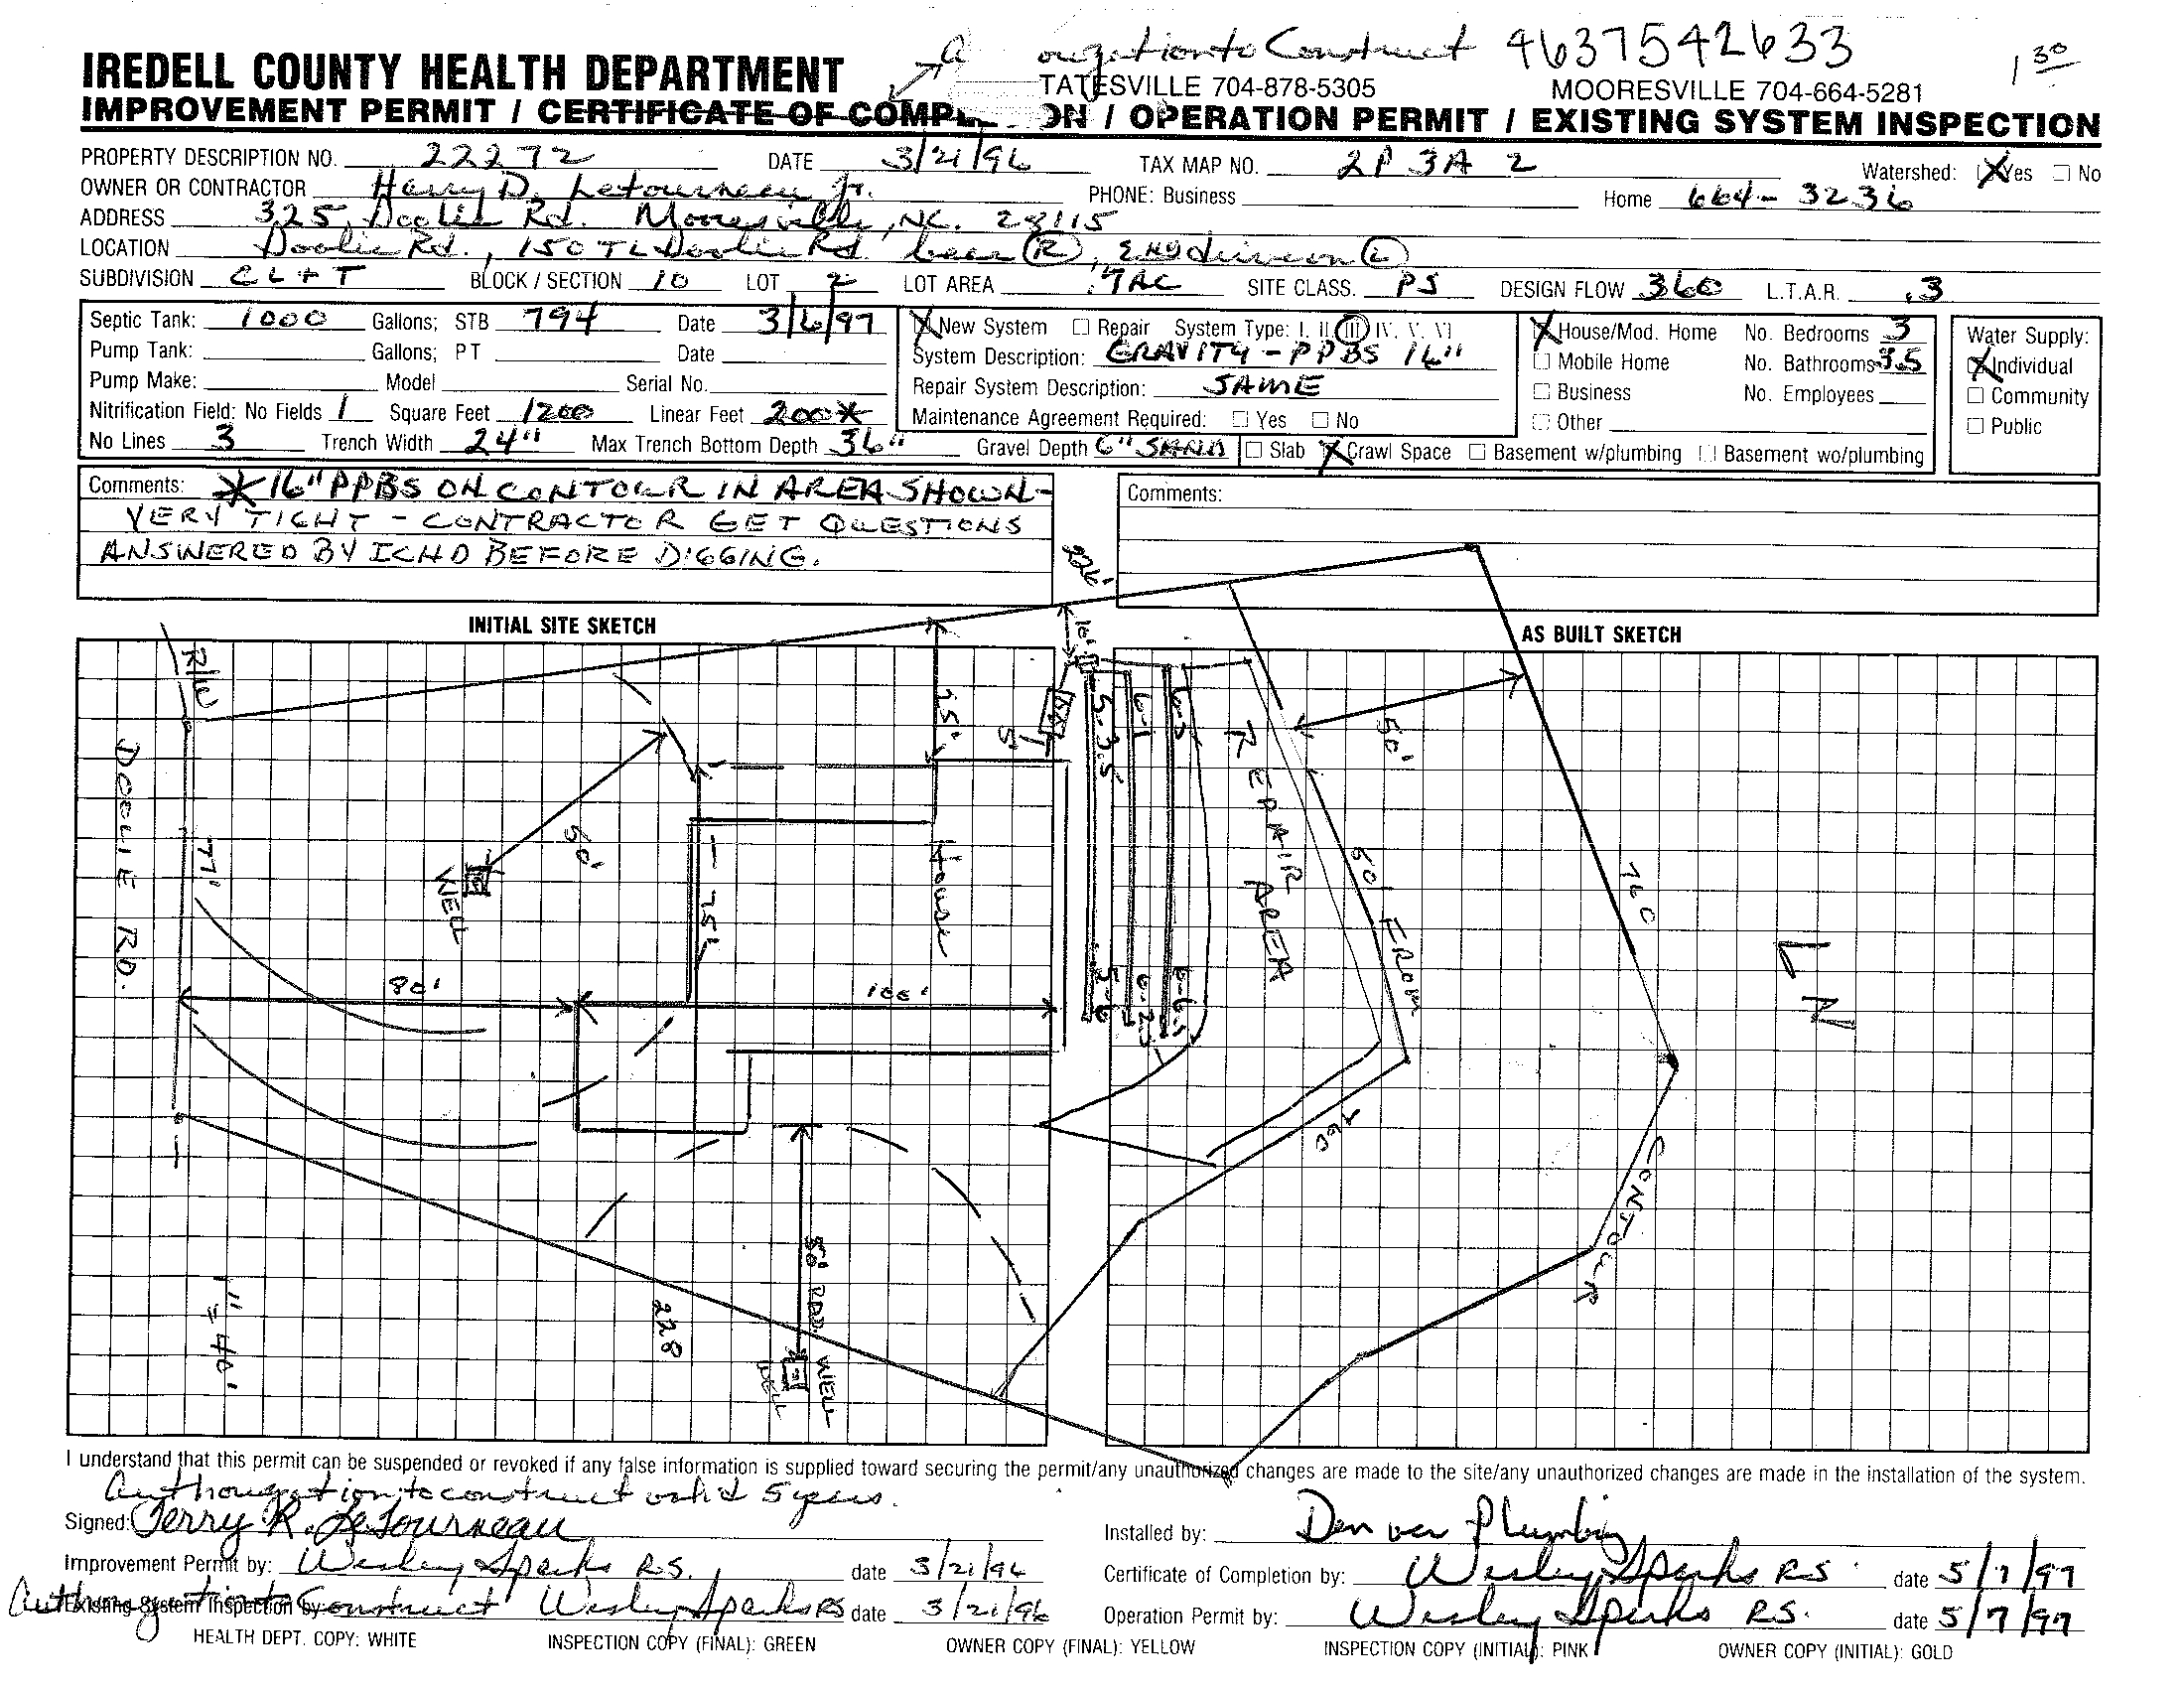 Construct 4637542633
IREDELL COUNTY HEALTH DEPARTMENT TATESVILLE 704-878-5305 MOORESVILLE 704-664-5281 1 30
IMPROVEMENT PERMIT / CERTIFICATE OF COMPL ON / OPERATION PERMIT / EXISTING SYSTEM INSPECTION
PROPERTY DESCRIPTION NO. 22272 DATE 3/21/96 TAX MAP NO. 2P 3A 2 Watershed: X Yes No
OWNER OR CONTRACTOR Harry D. Letourneau Jr. PHONE: Business Home 664-3236
ADDRESS 325 Doolie Rd. Mooresville, NC. 28115
LOCATION Doolie Rd., 150 TL Doolie Rd. (R), (L)
SUBDIVISION CL+T BLOCK / SECTION 10 LOT 2 LOT AREA .7AC SITE CLASS. PS DESIGN FLOW 360 L.T.A.R. .3
Septic Tank: 1000 Gallons; STB 794 Date 3/6/97 X New System Repair System Type: I, II, III, IV, V, VI X House/Mod. Home No. Bedrooms 3 Water Supply:
Pump Tank: Gallons; PT Date System Description: GRAVITY - PPBS 16" Mobile Home No. Bathrooms 3.5 X Individual
Pump Make: Model Serial No. Repair System Description: SAME Business No. Employees Community
Nitrification Field: No Fields 1 Square Feet 1200 Linear Feet 200* Maintenance Agreement Required: Yes No Other Public
No Lines 3 Trench Width 24" Max Trench Bottom Depth 36" Gravel Depth 6" SAND Slab X Crawl Space Basement w/plumbing Basement wo/plumbing
Comments: *16" PPBS ON CONTOUR IN AREA SHOWN-
VERY TIGHT - CONTRACTOR GET QUESTIONS
ANSWERED BY ICHD BEFORE DIGGING.
Comments:
226'
INITIAL SITE SKETCH
AS BUILT SKETCH
R/W
DOOLIE RD.
77'
WELL
50'
25'
75'
House
80'
100'
10'
5'
5-3.5
6-1
REPAIR AREA
50'
60' FROM
760
760
CONTOUR
N
228
50' RAD. WELL
WELL
1" = 40'
I understand that this permit can be suspended or revoked if any false information is supplied toward securing the permit/any unauthorized changes are made to the site/any unauthorized changes are made in the installation of the system.
Authorization to construct valid 5 years.
Signed: Terry R. LeTourneau
Installed by: Denver Plumbing
Improvement Permit by: Wesley Sparks R.S. date 3/21/96
Certificate of Completion by: Wesley Sparks RS. date 5/7/97
Authorization to Construct Existing System Inspection by: Wesley Sparks RS date 3/21/96
Operation Permit by: Wesley Sparks R.S. date 5/7/97
HEALTH DEPT. COPY: WHITE INSPECTION COPY (FINAL): GREEN OWNER COPY (FINAL): YELLOW INSPECTION COPY (INITIAL): PINK OWNER COPY (INITIAL): GOLD